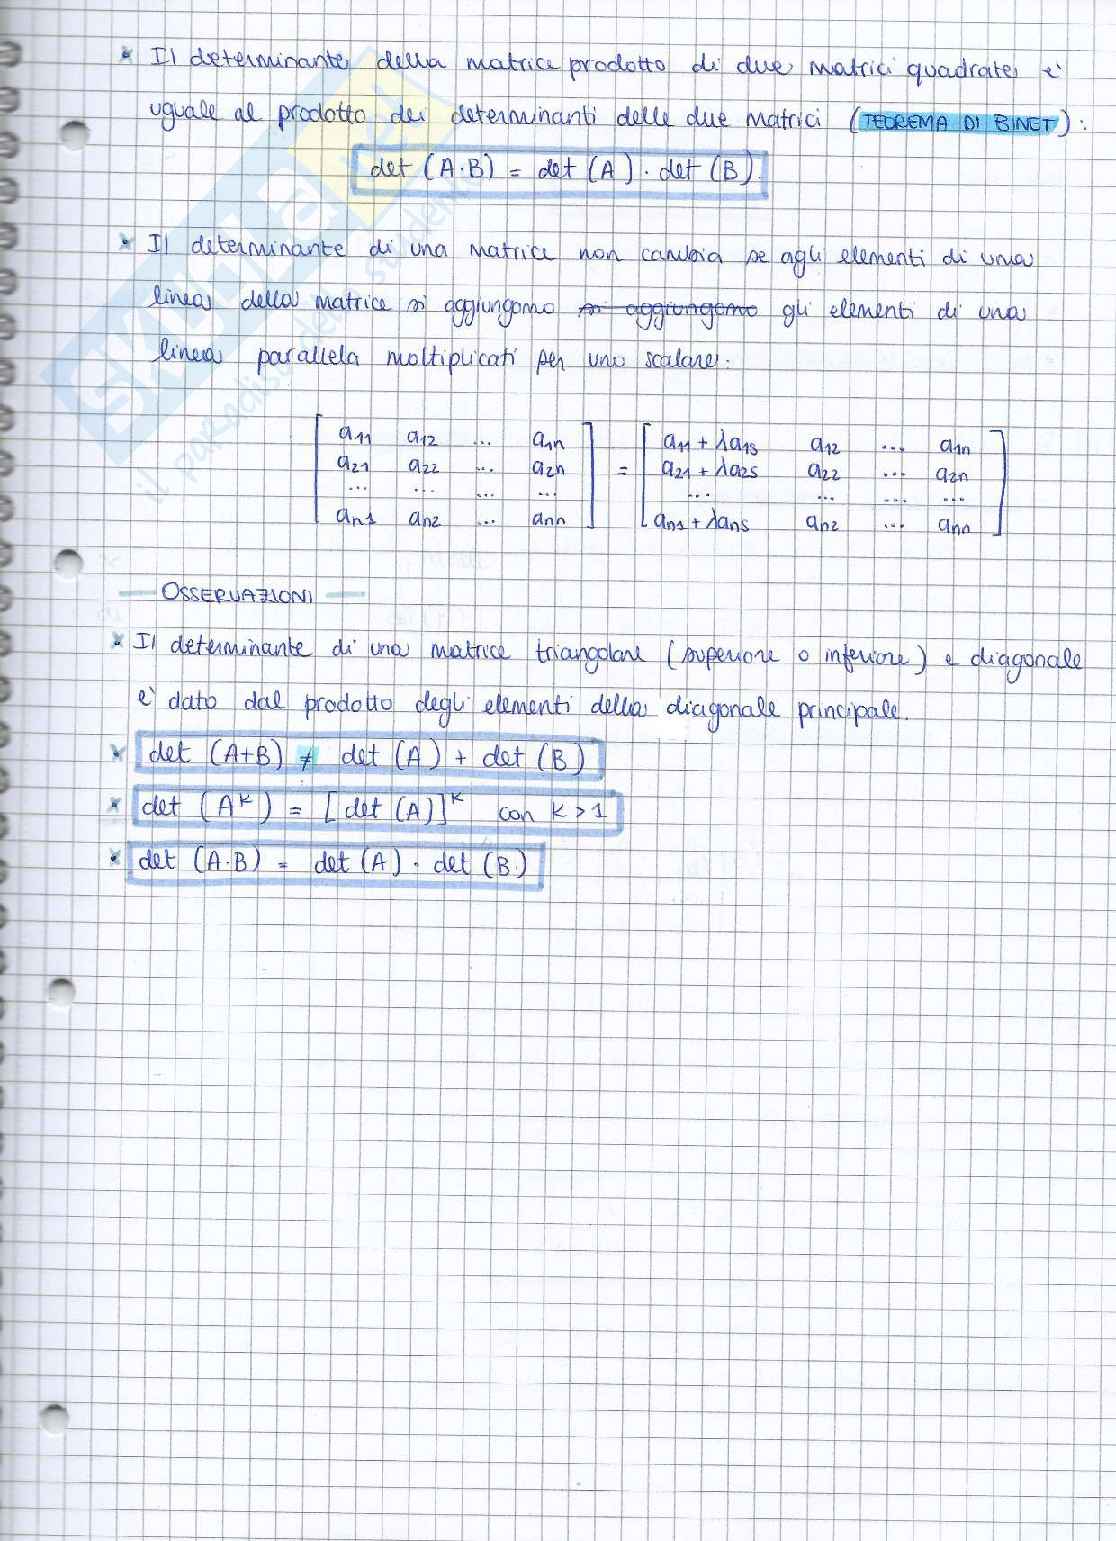 * Il determinante della matrice prodotto di due matrici quadrate è
uguale al prodotto dei determinanti delle due matrici (TEOREMA DI BINET):
det (A·B) = det (A) · det (B).
* Il determinante di una matrice non cambia se agli elementi di una
linea della matrice si aggiungono si aggiungono gli elementi di una
linea parallela moltiplicati per uno scalare.
[a11 a12 ... a1n] = [a11 + λa1s a12 ... a1n]
[a21 a22 ... a2n] [a21 + λa2s a22 ... a2n]
[... ... ... ...] [... ... ... ...]
[an1 an2 ... ann] [an1 + λans an2 ... ann]
— OSSERVAZIONI —
* Il determinante di una matrice triangolare (superiore o inferiore) e diagonale
è dato dal prodotto degli elementi della diagonale principale.
* det (A+B) ≠ det (A) + det (B)
* det (A^k) = [det (A)]^k con k > 1
* det (A·B) = det (A) · det (B)
skuola.net
il paradiso dello studente